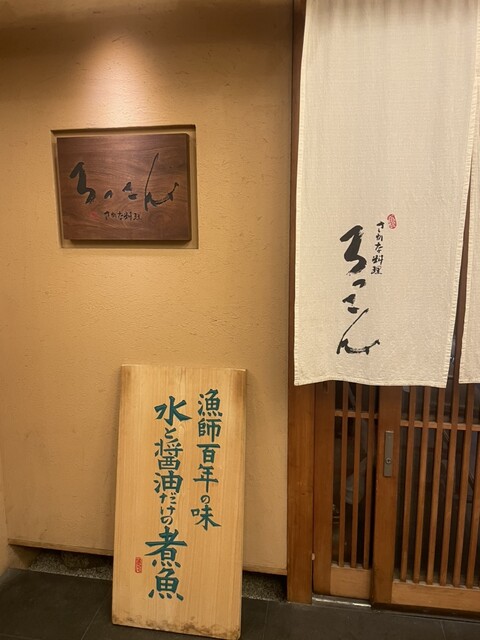 ろっこん
さかな料理
さかな料理
ろっこん
漁師百年の味
水と醤油だけの煮魚